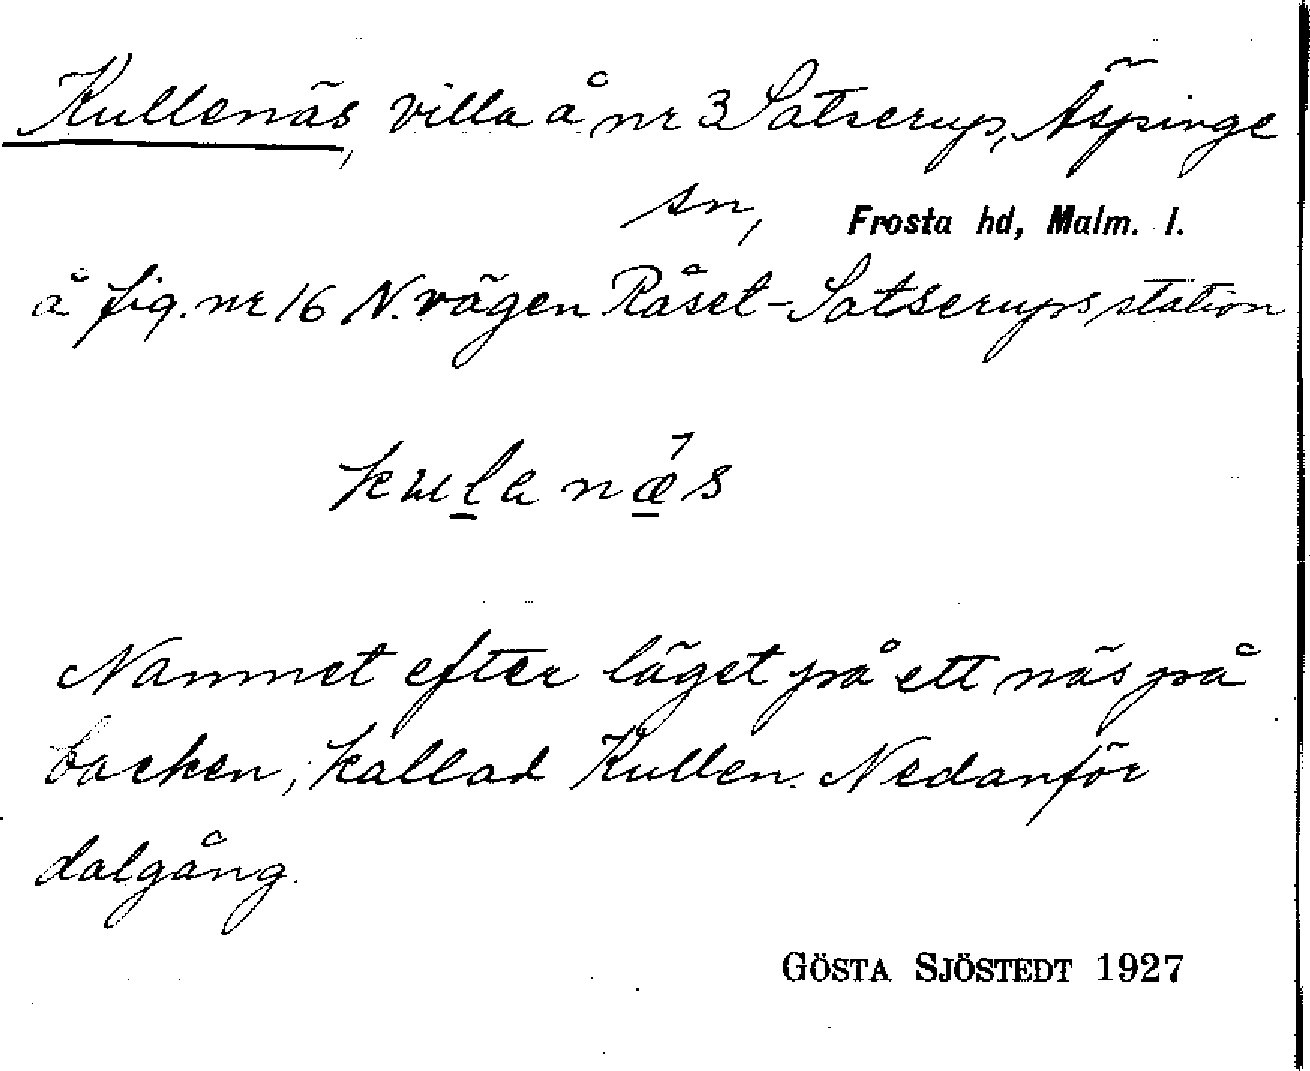 Kullenäs, villa å nr 3 Satserup, Äspinge
sn, Frosta hd, Malm. l.
å fig. nr 16 N. vägen Råset-Satserups station
kulanæ´s
Namnet efter läget på ett näs på
backen, kallad Kullen. Nedanför
dalgång.
GÖSTA SJÖSTEDT 1927